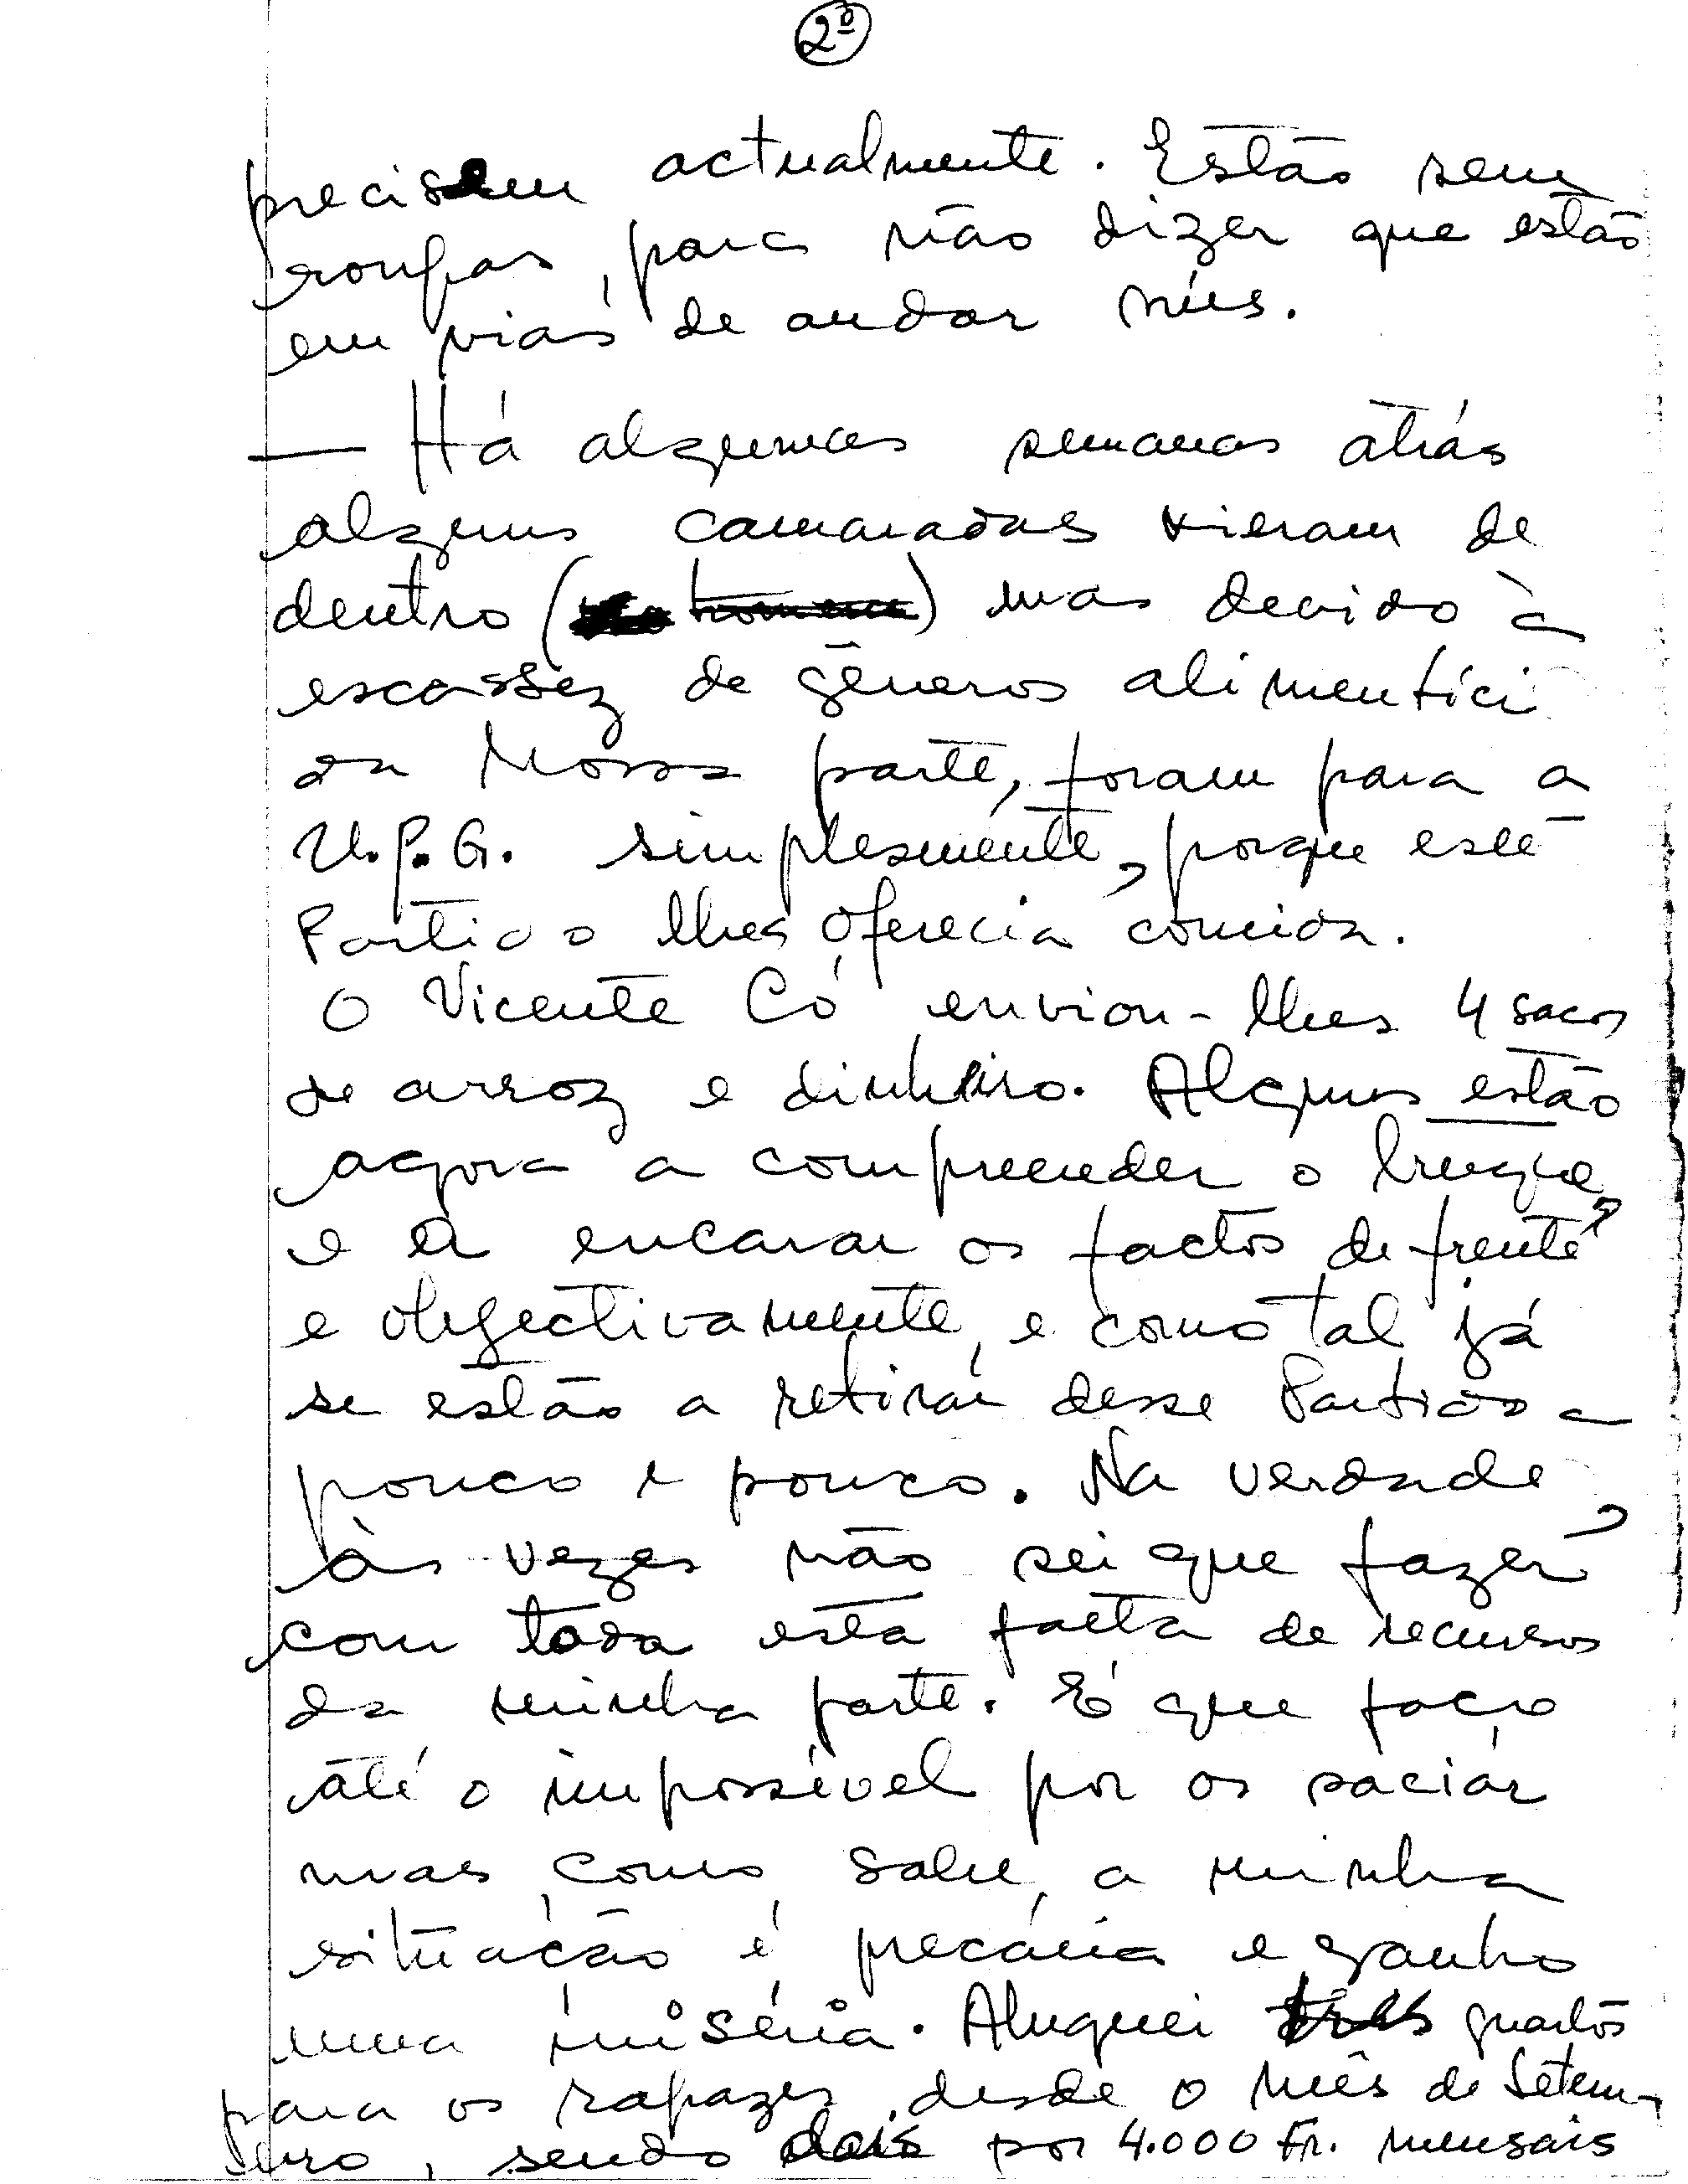 2º
precisem actualmente. Estão sem
roupas, para não dizer que estão
em vias de andar nús.
— Há algumas semanas atrás
alguns camaradas vieram de
dentro () mas devido à
escassez de géneros alimentíci
da Nossa parte, foram para a
U.P.G. simplesmente, porque este
Partido lhes oferecia comida.
O Vicente Có enviou-lhes 4 sacos
de arroz e dinheiro. Alguns estão
agora a compreender o truque,
e a encarar os factos de frente
e objectivamente, e como tal já
se estão a retirar desse Partido a
pouco e pouco. Na verdade,
às vezes não sei que fazer
com toda esta falta de recursos
da minha parte. É que faço
até o impossível por os saciar
mas, como sabe, a minha
situação é precária e ganho
uma miséria. Aluguei três quartos
para os rapazes desde o mês de Setem-
bro, sendo dois por 4.000 Fr. mensais